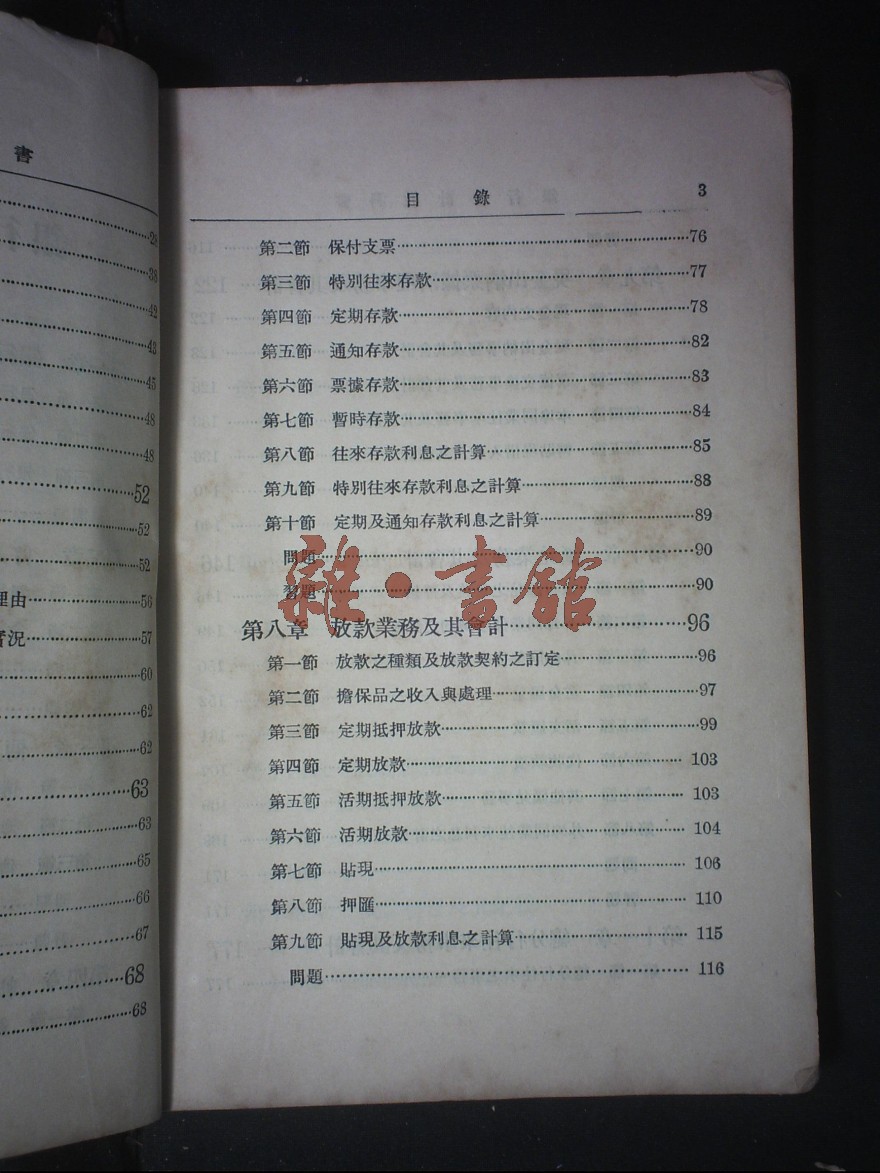 書
28
38
42
43
45
48
48
52
52
52
理由 56
實況 57
60
62
62
63
63
65
66
67
68
68
目錄 3
第二節 保付支票 76
第三節 特別往來存款 77
第四節 定期存款 78
第五節 通知存款 82
第六節 票據存款 83
第七節 暫時存款 84
第八節 往來存款利息之計算 85
第九節 特別往來存款利息之計算 88
第十節 定期及通知存款利息之計算 89
問題 90
習題 90
第八章 放款業務及其會計 96
第一節 放款之種類及放款契約之訂定 96
第二節 擔保品之收入與處理 97
第三節 定期抵押放款 99
第四節 定期放款 103
第五節 活期抵押放款 103
第六節 活期放款 104
第七節 貼現 106
第八節 押匯 110
第九節 貼現及放款利息之計算 115
問題 116
雜·書館